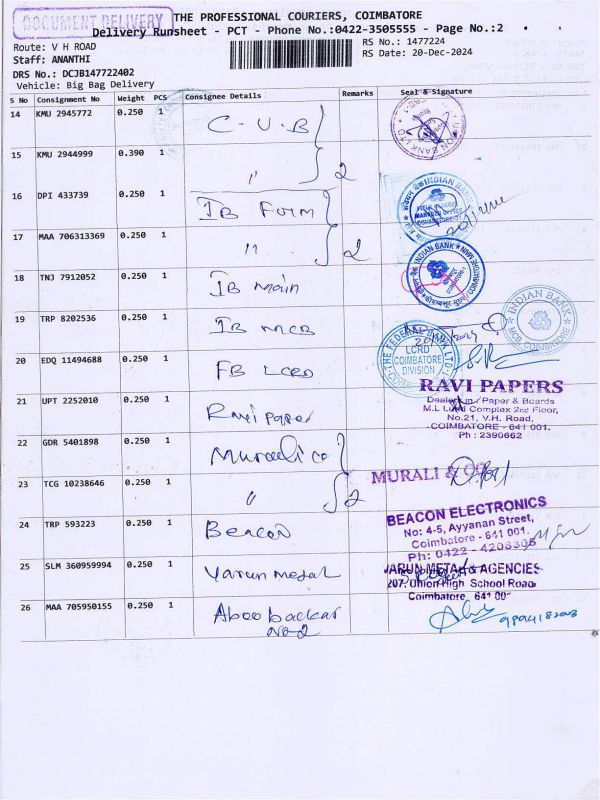 DOCUMENT DELIVERY
THE PROFESSIONAL COURIERS, COIMBATORE
Delivery Runsheet - PCT - Phone No.:0422-3505555 - Page No.:2
Route: V H ROAD
RS No.: 1477224
Staff: ANANTHI
RS Date: 20-Dec-2024
DRS No.: DCJB147722402
Vehicle: Big Bag Delivery
S No Consignment No Weight PCS Consignee Details Remarks Seal & Signature
14 KMU 2945772 0.250 1 C-U-B
15 KMU 2944999 0.390 1 " 2
16 DPI 433739 0.250 1 IB Form
INDIAN BANK
17 MAA 706313369 0.250 1 " 2
INDIAN BANK
18 TNJ 7912052 0.250 1 IB main
INDIAN BANK
MCB, COIMBATORE
19 TRP 8202536 0.250 1 IB MCB
20 EDQ 11494688 0.250 1 FB LCRD
THE FEDERAL BANK LTD
LCRD
COIMBATORE
DIVISION
21 UPT 2252010 0.250 1 Ravi paper
RAVI PAPERS
Dealers in Paper & Boards
M.L Complex 2nd Floor,
No.21, V.H. Road,
COIMBATORE - 641 001.
Ph : 2390662
22 GDR 5401898 0.250 1 Murali co
23 TCG 10238646 0.250 1 " 2
MURALI & CO
24 TRP 593223 0.250 1 Beacon
BEACON ELECTRONICS
No: 4-5, Ayyanan Street,
Coimbatore - 641 001.
Ph: 0422 - 4208305
25 SLM 360959994 0.250 1 Varun metal
VARUN METAL & AGENCIES
207, Union High School Road
Coimbatore, 641 00
26 MAA 705950155 0.250 1 Aboobackar
No-2